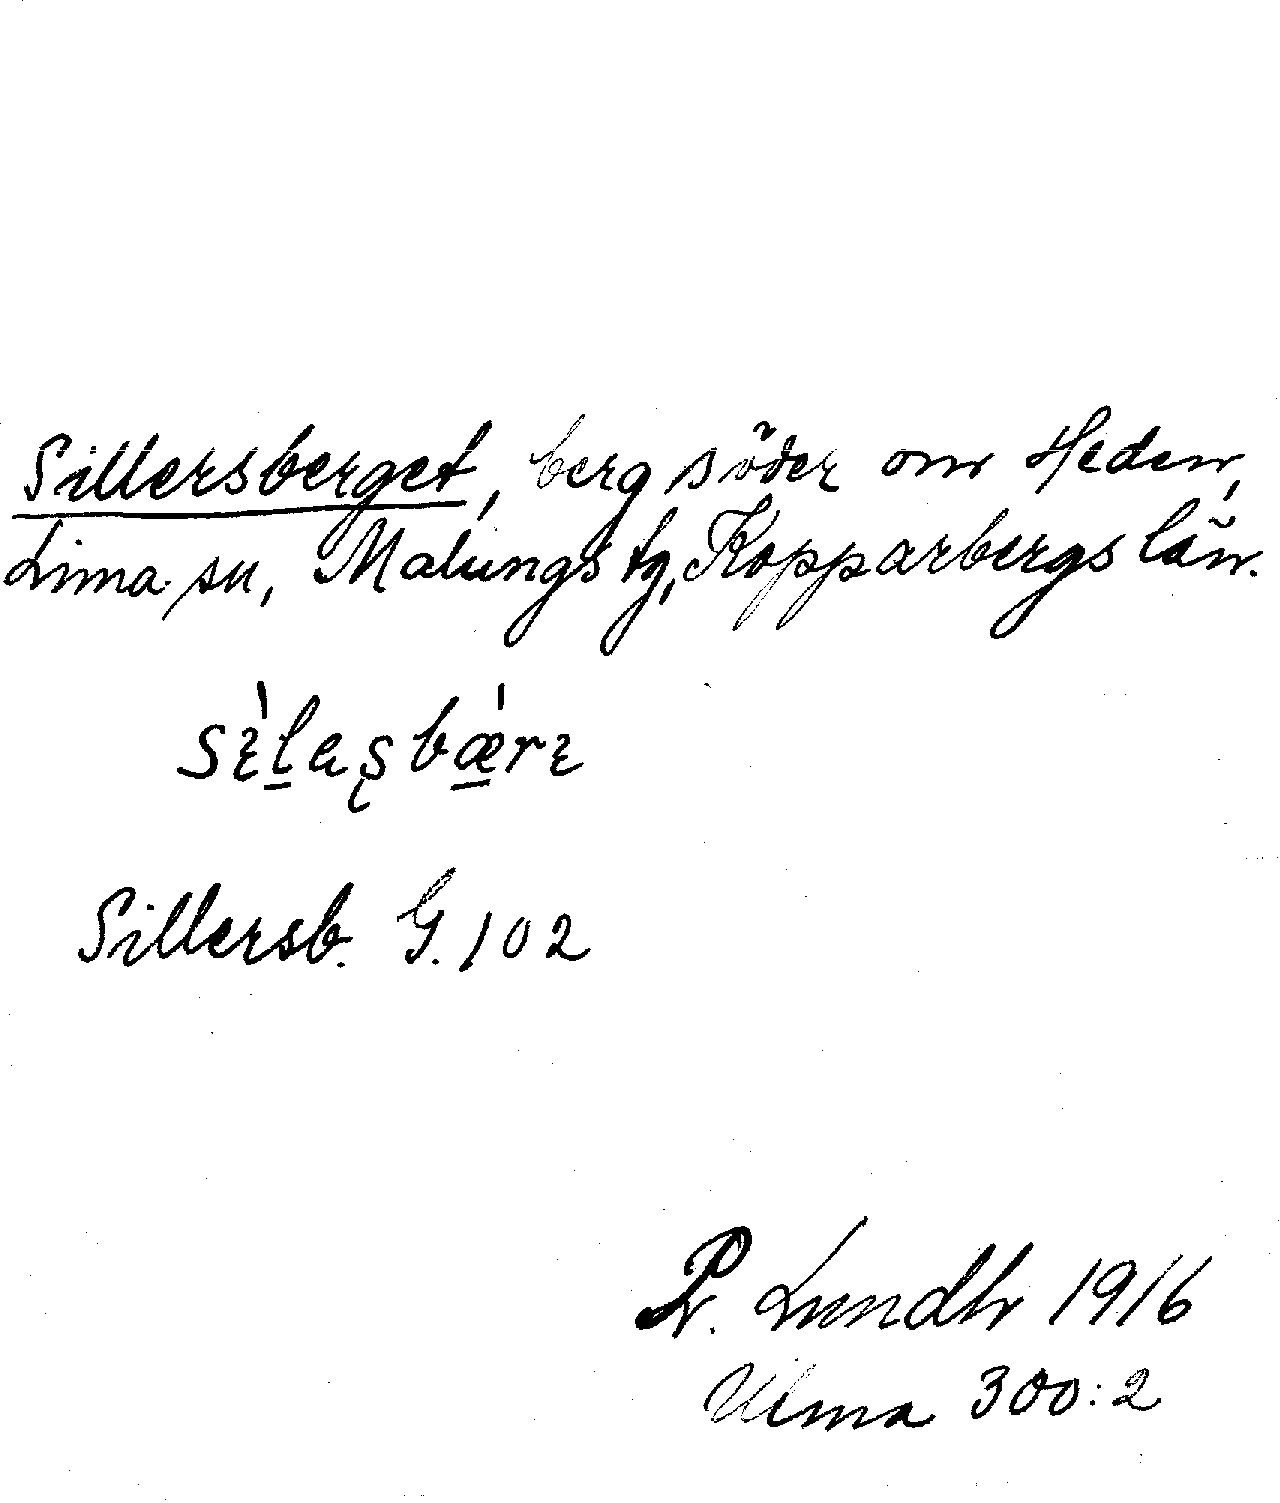 Sillersberget, berg söder om Heden,
Lima sn, Malungs tg, Kopparbergs län.
Sillersb. G. 102
Lundh 1916
Ulma 300:2